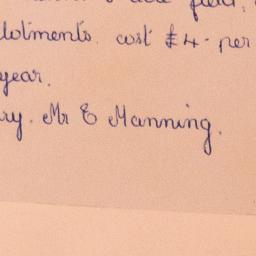 lotments. cost £4. per
year.
ry. Mr E Manning.